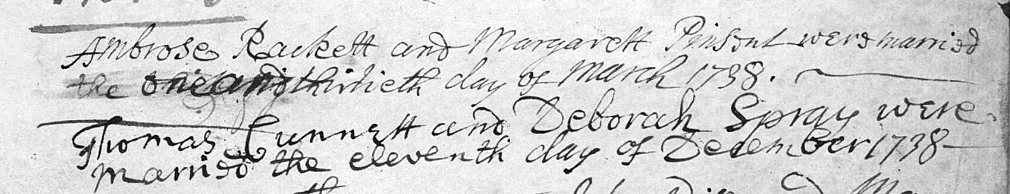 Ambrose Rackett and Margarett Pinsent were married
the one and thirtieth day of March 1738.
Thomas Cunnett and Deborah Spray were
married the eleventh day of December 1738